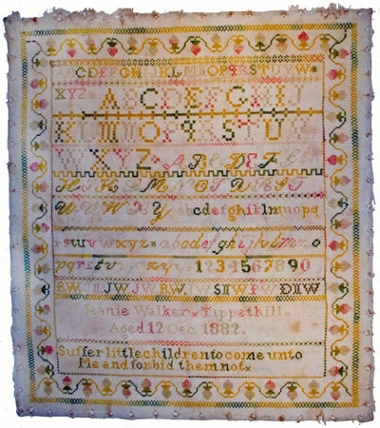 CDEFGHIJKLMNOPQRST W
XYZ ABCDEFGHIJ
KLMNOPQRSTUV
WXYZ ABCDEFG
HIJKLMNOPQRST
UVWXY bcdefghiklmnopq
suvwxyz abcdefghijklmno
pqrstv xyz 1234567890
RW JW JW RW W SW RW DW
Jeanie Walker x Tippethill x
Aged 12 Dec 1882 x
Suffer little children to come unto
Me and forbid them not x